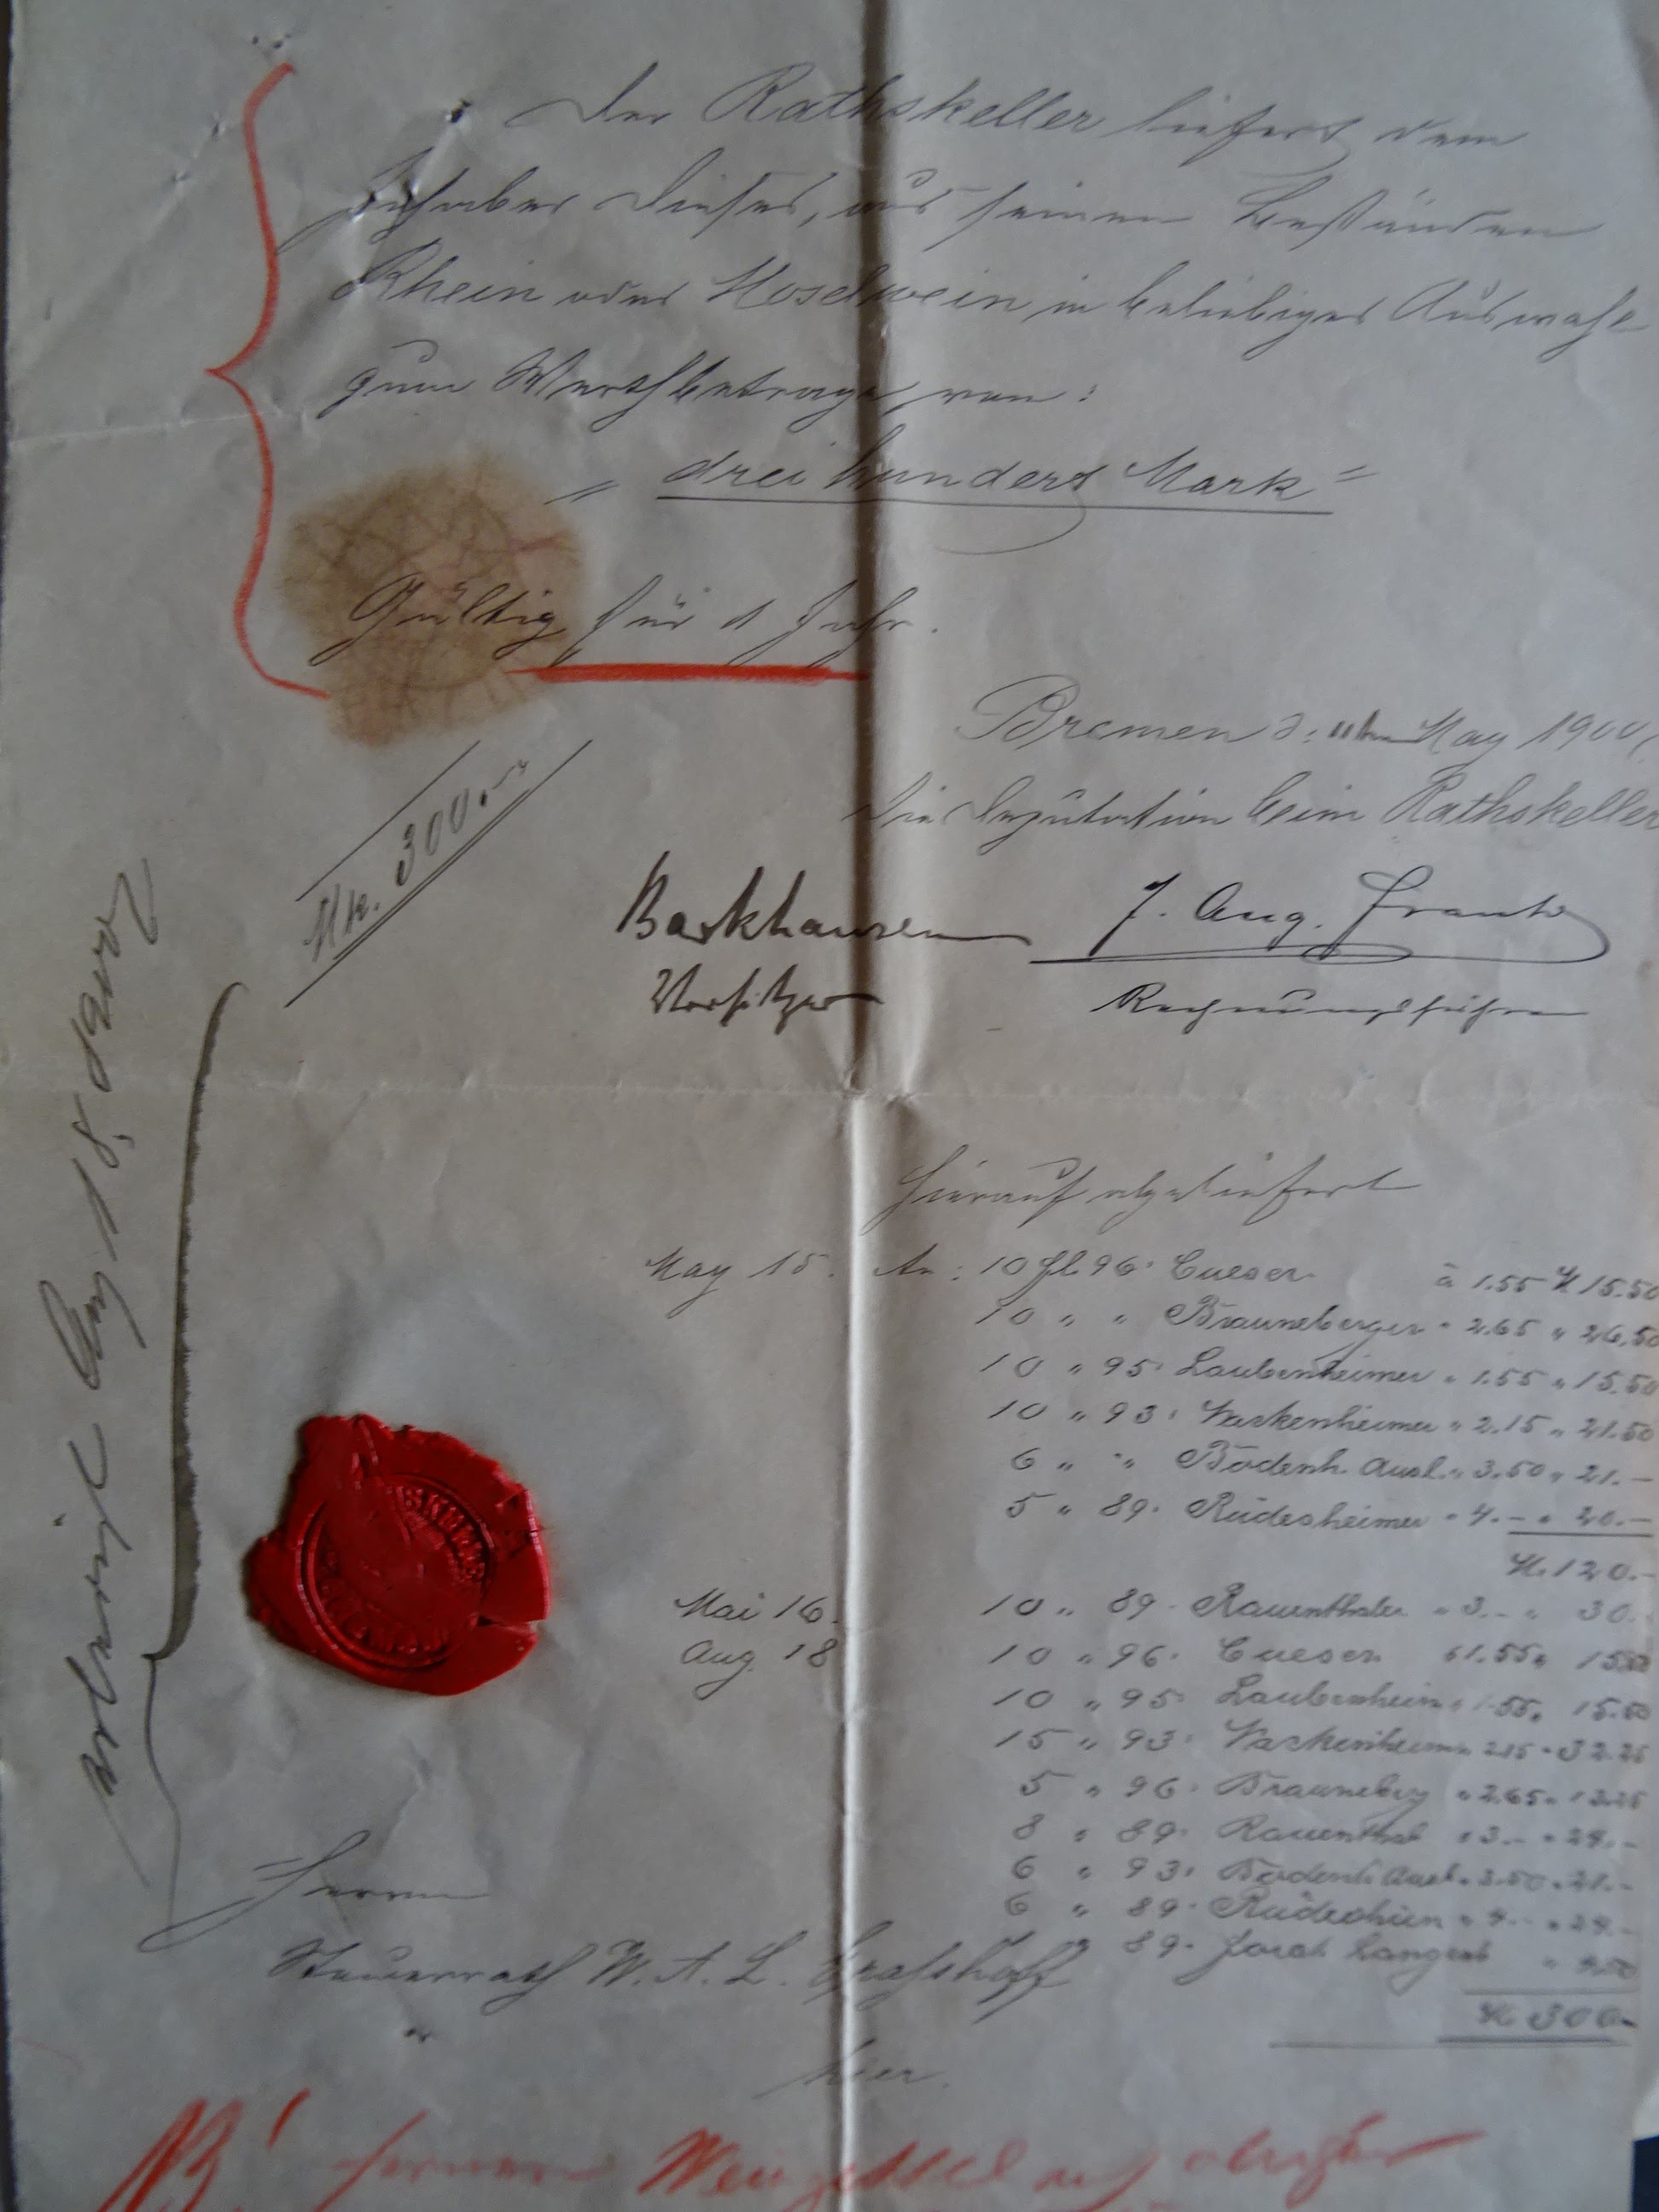 Der Rathskeller liefert dem
Inhaber dieses, aus seinen Beständen
Rhein oder Moselwein in beliebiger Auswahl
zum Werthbetrage von:
"drei hundert Mark"
Gültig für 1 Jahr.
Bremen d: 11ten May 1900
Die Deputation beim Rathskeller
Mk. 300.
Barkhausen J. Aug.
Vorsitzer Rechnungsführer
Hierauf abgeliefert
May 15. An: 10 Fl. 96r Cueser à 1.55 M 15.50
10 " " Brauneberger " 2.65 " 26.50
10 " 95r Laubenheimer " 1.55 " 15.50
10 " 93r Narkenheimer " 2.15 " 21.50
6 " " Bodenh. Ausl. " 3.50 " 21.-
5 " 89r Rüdesheimer " 4.- " 20.-
M. 120.-
Mai 16. 10 " 89r Rauenthaler " 3.- " 30.
Aug. 18 10 " 96r Cueser " 1.55 " 15.50
10 " 95r Laubenheim " 1.55 " 15.50
15 " 93r Narkenheim " 2.15 " 32.25
5 " 96r Brauneberg " 2.65 " 13.25
8 " 89r Rauenthal " 3.- " 24.-
6 " 93r Bodenh. Ausl. " 3.50 " 21.-
6 " 89r Rüdesheim " 4.- " 24.-
89r " 4.50
M. 300.-
Aug 18. 1900
Herrn
Steuerrath W. A. L. Grashoff
hier.
Herrn